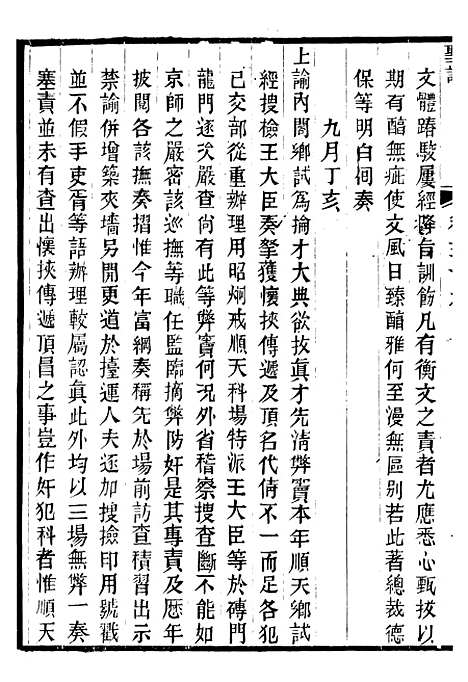 聖訓
文體踳駮屢經降旨訓飭凡有衡文之責者尤應悉心甄拔以
期有醇無疵使文風日臻醇雅何至漫無區別若此著總裁德
保等明白囘奏
九月丁亥
上諭內閣鄉試爲掄才大典欲拔眞才先清弊竇本年順天鄉試
經搜檢王大臣奏拏獲懷挾傳遞及頂名代倩不一而足各犯
己交部從重辦理用昭炯戒順天科場特派王大臣等於磚門
龍門逐次嚴查尚有此等弊竇何况外省稽察搜查斷不能如
京師之嚴密該巡撫等職任監臨摘弊防奸是其專責及歷年
披閱各該撫奏摺惟今年富綱奏稱先於場前訪查積習出示
禁諭併增築夾墻另開更道於擡運人夫逐加搜檢印用號戳
並不假手吏胥等語辦理較屬認眞此外均以三場無弊一奏
塞責並未有查出懷挾傳遞頂昌之事豈作奸犯科者惟順天